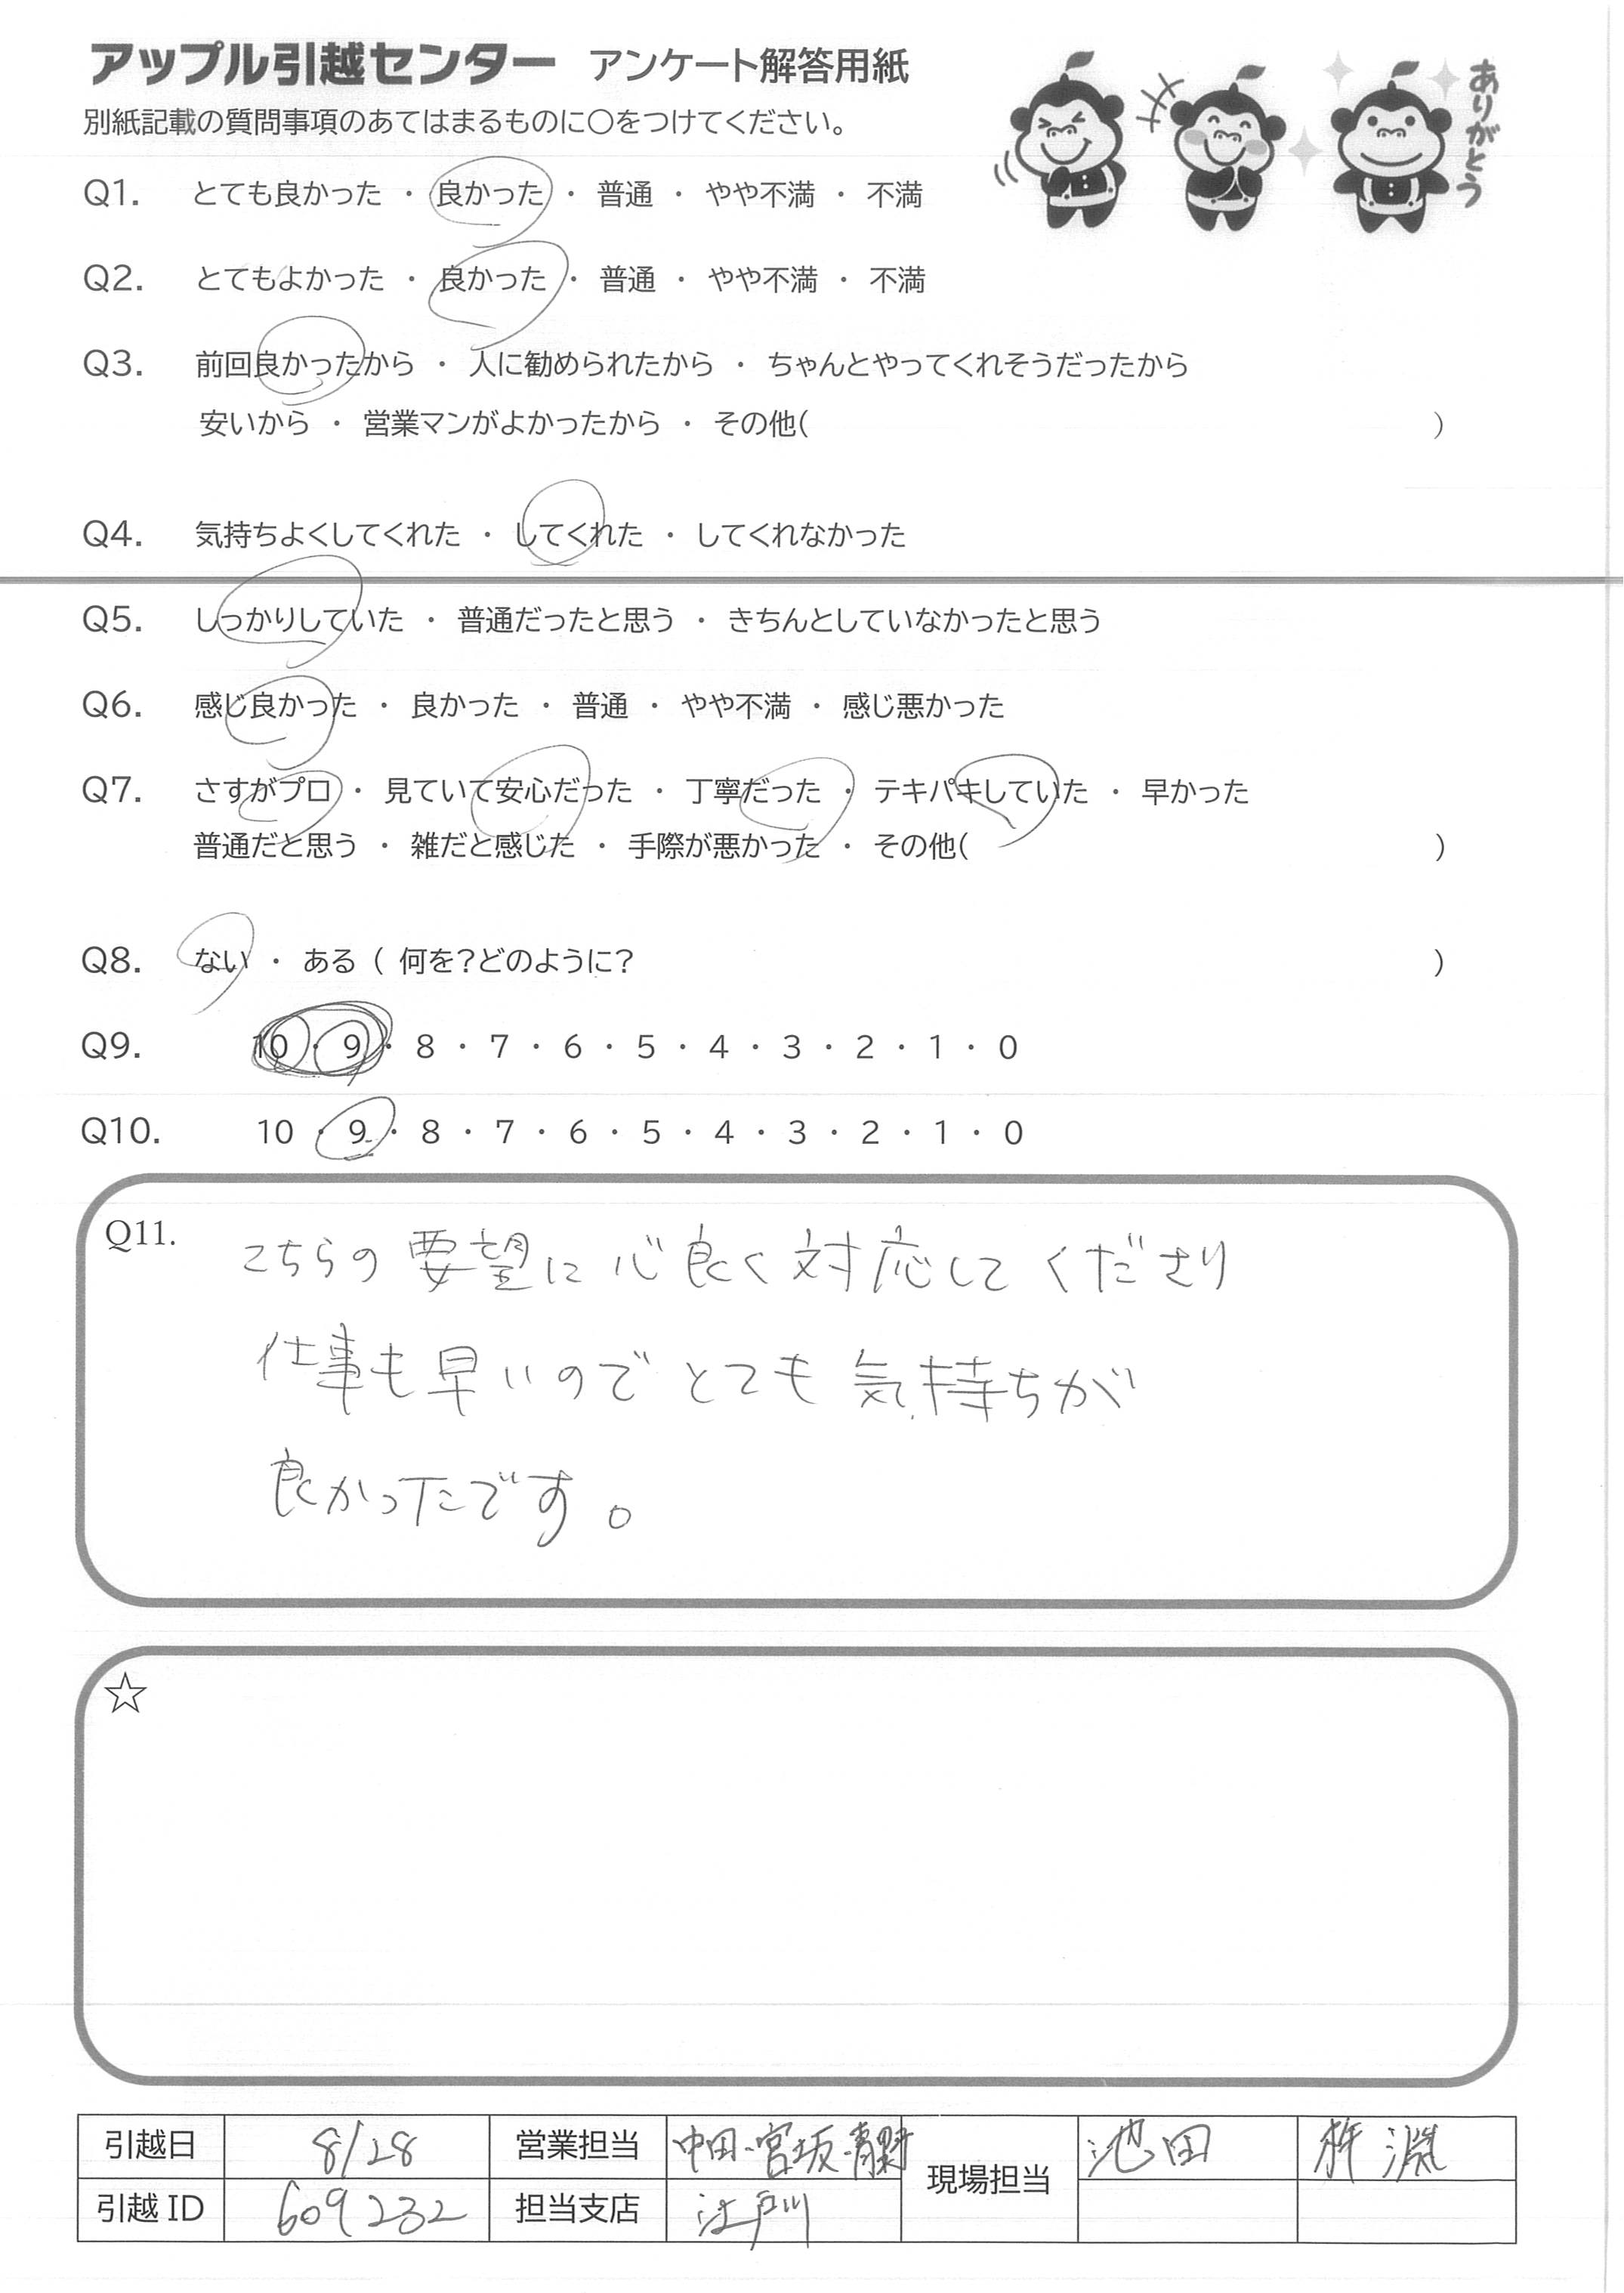 アップル引越センター アンケート解答用紙
ありがとう
別紙記載の質問事項のあてはまるものに〇をつけてください。
Q1. とても良かった ・ 良かった ・ 普通 ・ やや不満 ・ 不満
Q2. とてもよかった ・ 良かった ・ 普通 ・ やや不満 ・ 不満
Q3. 前回良かったから ・ 人に勧められたから ・ ちゃんとやってくれそうだったから
安いから ・ 営業マンがよかったから ・ その他( )
Q4. 気持ちよくしてくれた ・ してくれた ・ してくれなかった
Q5. しっかりしていた ・ 普通だったと思う ・ きちんとしていなかったと思う
Q6. 感じ良かった ・ 良かった ・ 普通 ・ やや不満 ・ 感じ悪かった
Q7. さすがプロ ・ 見ていて安心だった ・ 丁寧だった ・ テキパキしていた ・ 早かった
普通だと思う ・ 雑だと感じた ・ 手際が悪かった ・ その他( )
Q8. ない ・ ある ( 何を?どのように? )
Q9. 10 ・ 9 ・ 8 ・ 7 ・ 6 ・ 5 ・ 4 ・ 3 ・ 2 ・ 1 ・ 0
Q10. 10 ・ 9 ・ 8 ・ 7 ・ 6 ・ 5 ・ 4 ・ 3 ・ 2 ・ 1 ・ 0
Q11. こちらの要望に心良く対応してくださり
仕事も早いのでとても気持ちが
良かったです。
☆
引越日 8/28 営業担当 中田・宮坂・青野 現場担当 池田 淵
引越ID 609232 担当支店 江戸川